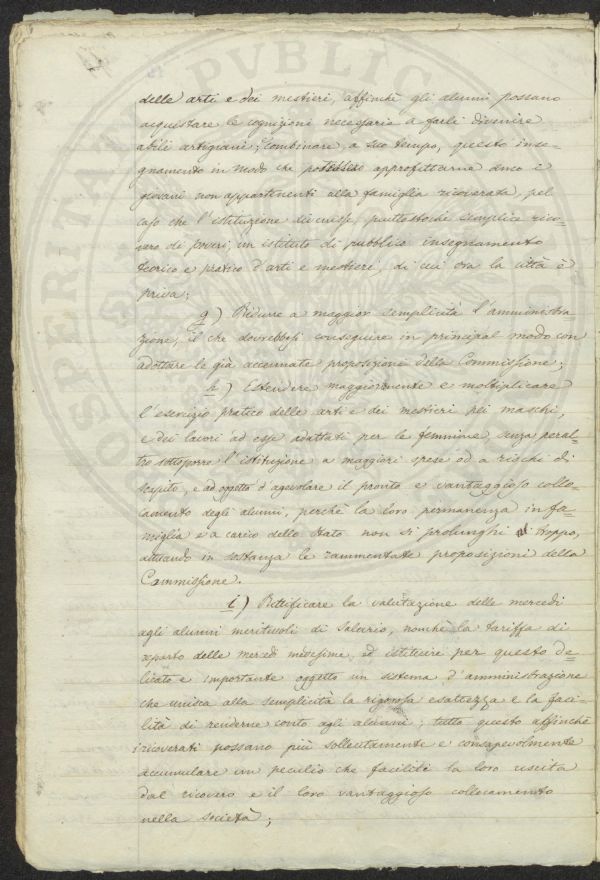 delle arti e dei mestieri, affinchè gli alunni possano
acquistare le cognizioni necessarie a farli divenire
abili artigiani; combinare, a suo tempo, questo inse-
gnamento in modo che potessero approfittarne anco i
giovani non appartenenti alla famiglia ricoverata, pel
caso che l'istituzione divenisse, piuttostochè semplice rico-
vero di poveri, un istituto di pubblico insegnamento
teorico e pratico d'arti e mestieri, di cui ora la città è
priva;
g) Ridurre a maggior semplicità l'amministra-
zione, il che dovrebbesi conseguire in principal modo con
adottare le già accennate proposizioni della Commissione;
h) Estendere maggiormente e moltiplicare
l'esercizio pratico delle arti e dei mestieri pei maschi,
e dei lavori ad esse adattati per le femmine, senza peral-
tro sottoporre l'istituzione a maggiori spese od a rischi di
scapito, e ad oggetto d'agevolare il pronto e vantaggioso collo-
camento degli alunni, perchè la loro permanenza in fa-
miglia e a carico dello Stato non si prolunghi di troppo,
attuando in sostanza le rammentate proposizioni della
Commissione.
i) Rettificare la valutazione delle mercedi
agli alunni meritevoli di salario, nonchè la tariffa di
reparto delle mercedi medesime, ed istituire per questo de-
licato e importante oggetto un sistema d'amministrazione
che unisca alla semplicità la rigorosa esattezza e la faci-
lità di renderne conto agli alunni; tutto questo affinchè
i ricoverati possano più sollecitamente e consapevolmente
accumulare un peculio che faciliti la loro uscita
dal ricovero e il loro vantaggioso collocamento
nella società;